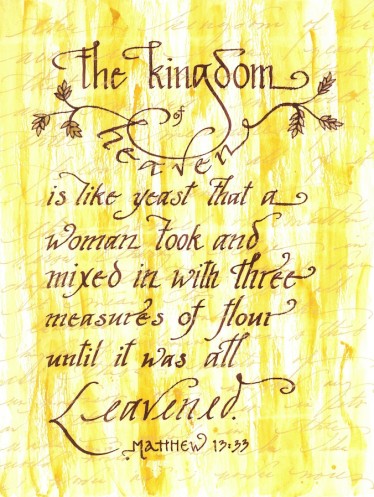 the kingdom
of
heaven
is like yeast that a
woman took and
mixed in with three
measures of flour
until it was all
Leavened.
Matthew 13:33